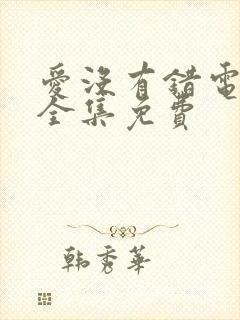 愛沒有錯電
全集免費
韩秀華